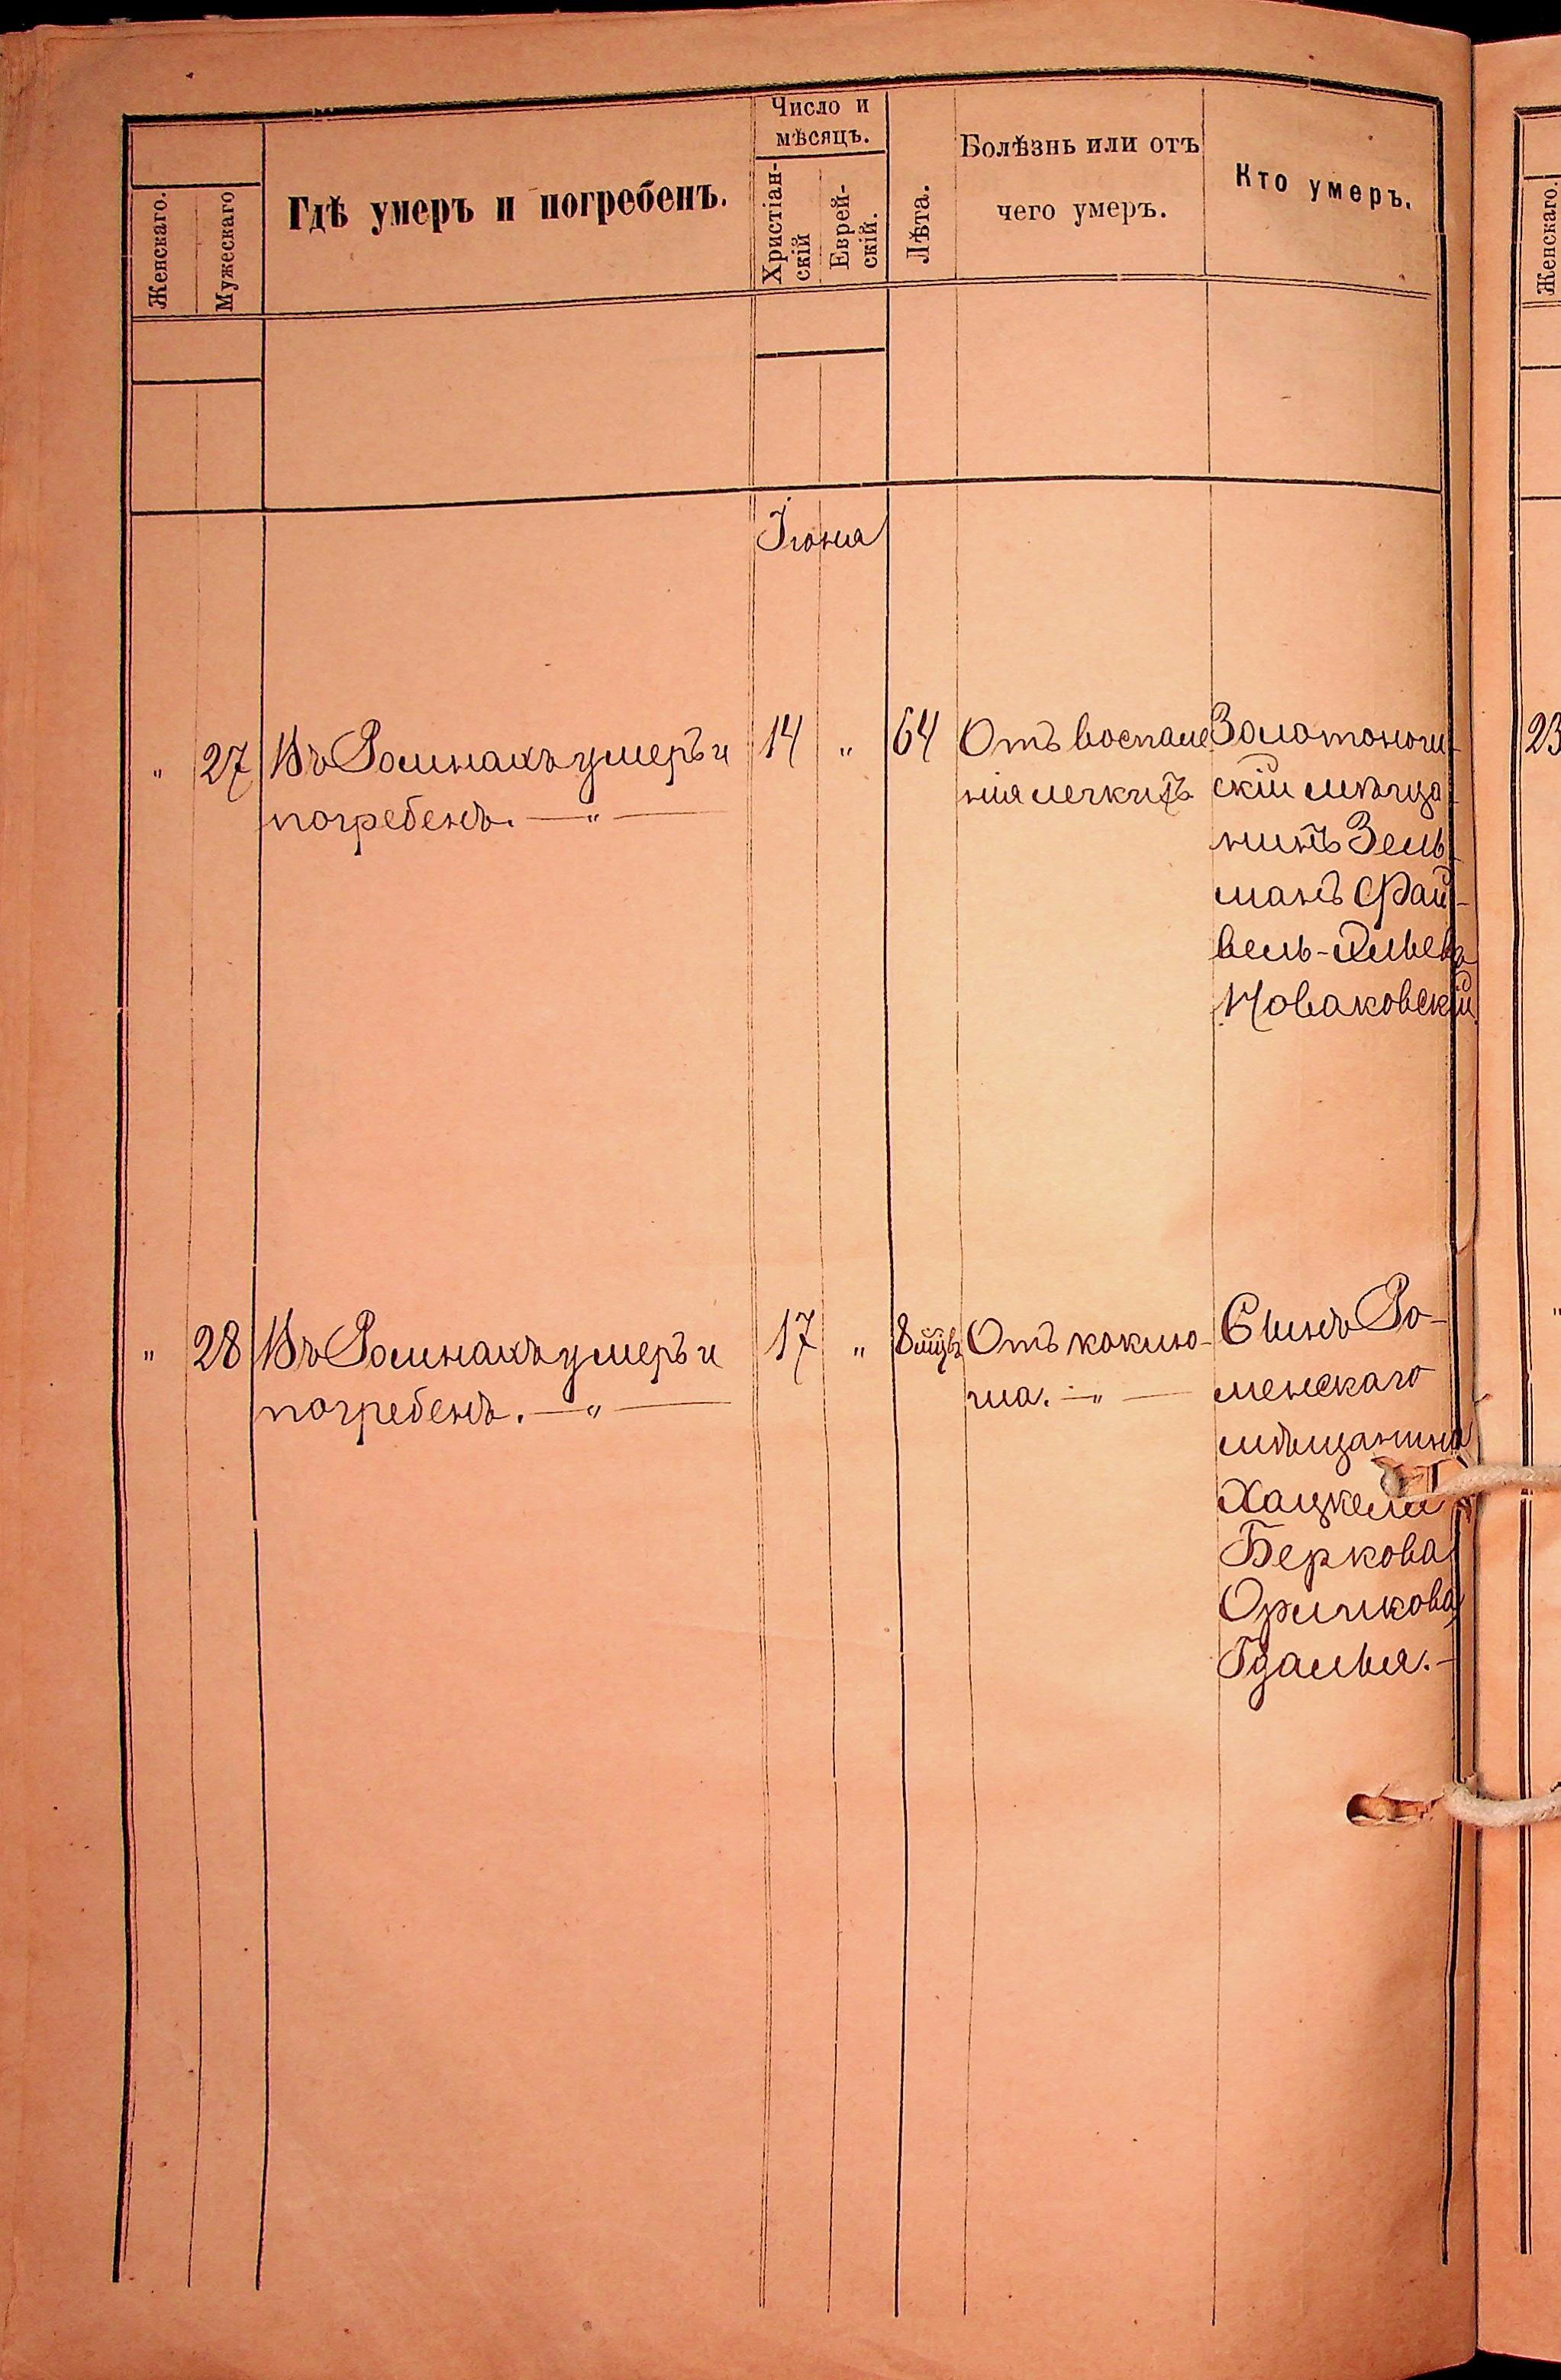 Женскаго.
Мужескаго
Гдѣ умеръ и погребенъ.
Число и
мѣсяцъ.
Христіан-
скій
Еврей-
скій.
Лѣта.
Болѣзнь или отъ
чего умеръ.
Кто умеръ.
Женскаго.
Іюня
" 27 Въ Ромнахъ умеръ и
погребенъ. — " —
14 " 64
Отъ воспале
нія легкихъ
Золотонош-
скій мѣща-
нинъ Зель-
манъ Фай-
вель-
Новаковскій
23
" 28 Въ Ромнахъ умеръ и
погребенъ. — " —
17 " 8 мцъ
Отъ коклю-
ша. — " —
Сынъ Ро-
менскаго
мѣщанина
Хацкеля
Беркова
Оричкова
Гдалья. —
"